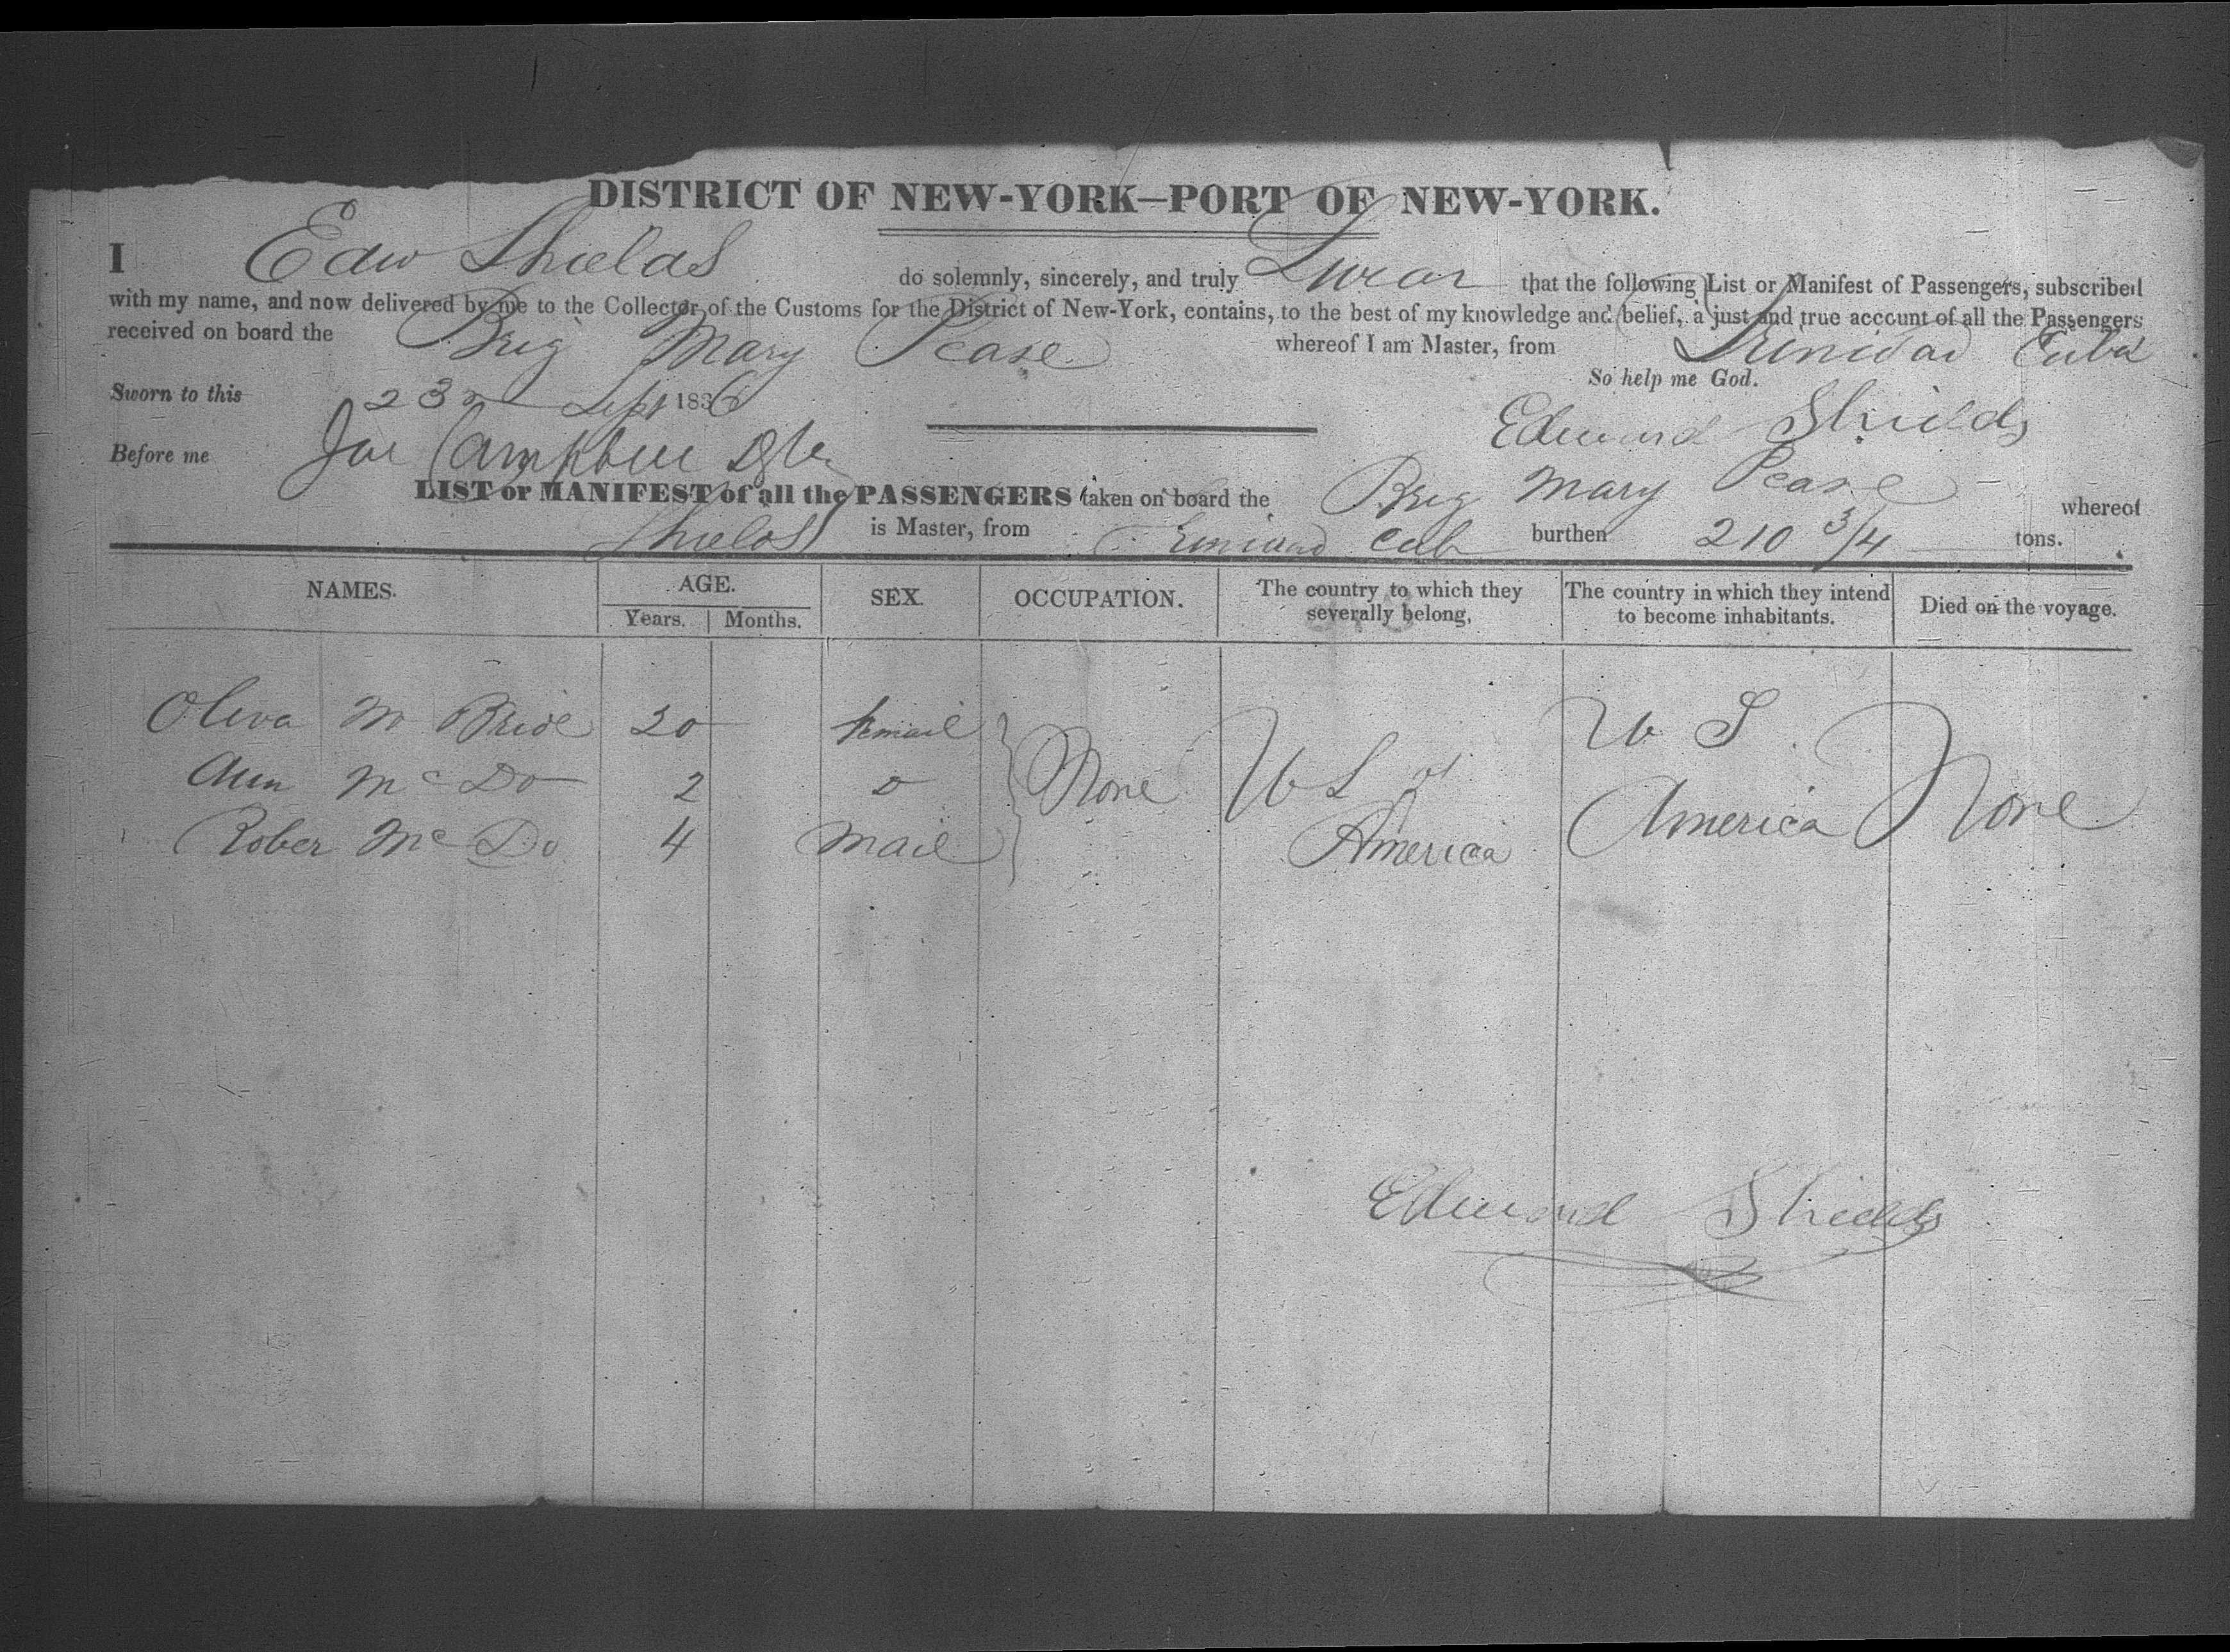 DISTRICT OF NEW-YORK—PORT OF NEW-YORK.
I Edw Shields do solemnly, sincerely, and truly Swear that the following List or Manifest of Passengers, subscribed
with my name, and now delivered by me to the Collector of the Customs for the District of New-York, contains, to the best of my knowledge and belief, a just and true account of all the Passengers
received on board the Brig Mary Pease whereof I am Master, from Trinidad Cuba
So help me God.
Sworn to this 23d Sept 1836
Edward Shields
Before me Campbell
LIST or MANIFEST of all the PASSENGERS taken on board the Brig Mary Pease whereof
Shields is Master, from Trinidad Cuba burthen 210 3/4 tons.
NAMES. AGE. SEX. OCCUPATION. The country to which they severally belong, The country in which they intend to become inhabitants. Died on the voyage.
Years. Months.
Oliva Mc Bride 30 femail
Ann Mc Do 2 D None U S of America U S America None
Rober Mc Do 4 Mail
Edward Shields